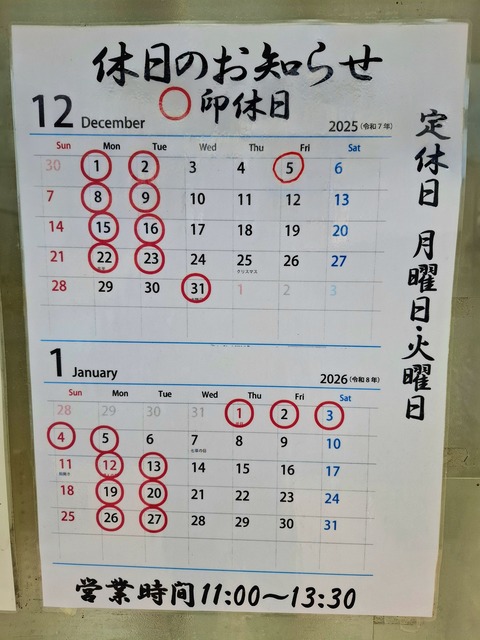 休日のお知らせ
○印休日
12 December 2025 (令和7年)
Sun Mon Tue Wed Thu Fri Sat
30 1 2 3 4 5 6
7 8 9 10 11 12 13
14 15 16 17 18 19 20
21 22 23 24 25 26 27
クリスマス
28 29 30 31 1 2 3
1 January 2026 (令和8年)
Sun Mon Tue Wed Thu Fri Sat
28 29 30 31 1 2 3
4 5 6 7 8 9 10
11 12 13 14 15 16 17
18 19 20 21 22 23 24
25 26 27 28 29 30 31
営業時間 11:00〜13:30
定休日 月曜日・火曜日